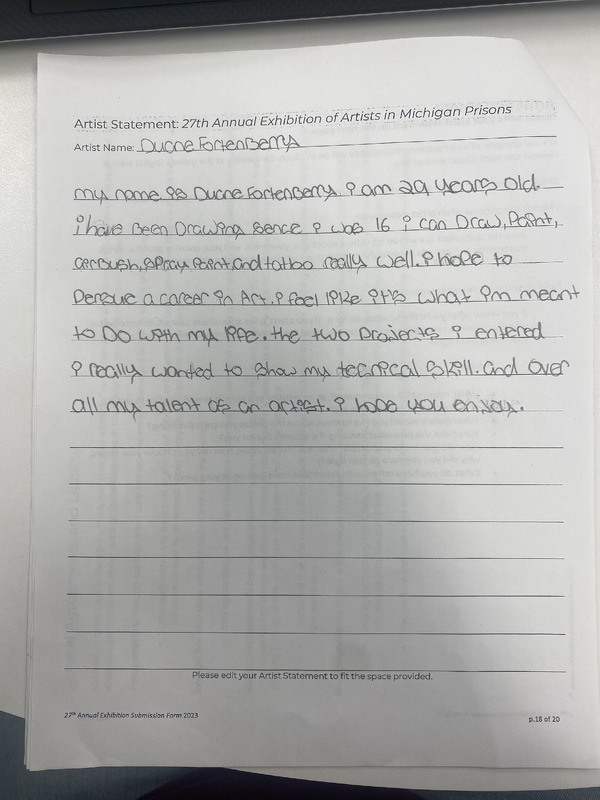 Artist Statement: 27th Annual Exhibition of Artists in Michigan Prisons
Artist Name: Duane Fortenberry
my name is Duane Fortenberry. i am 29 years old.
i have Been Drawing sence i was 16 i can Draw, Paint,
airbush, spray paint, and tattoo really well. i hope to
Dersue a career in Art. i feel like it's what i'm meant
to Do with my life. the two projects i entered
i really wanted to show my tecnical skill. and over
all my talent as an artist. i hope you enjoy.
Please edit your Artist Statement to fit the space provided.
27th Annual Exhibition Submission Form 2023
p.18 of 20